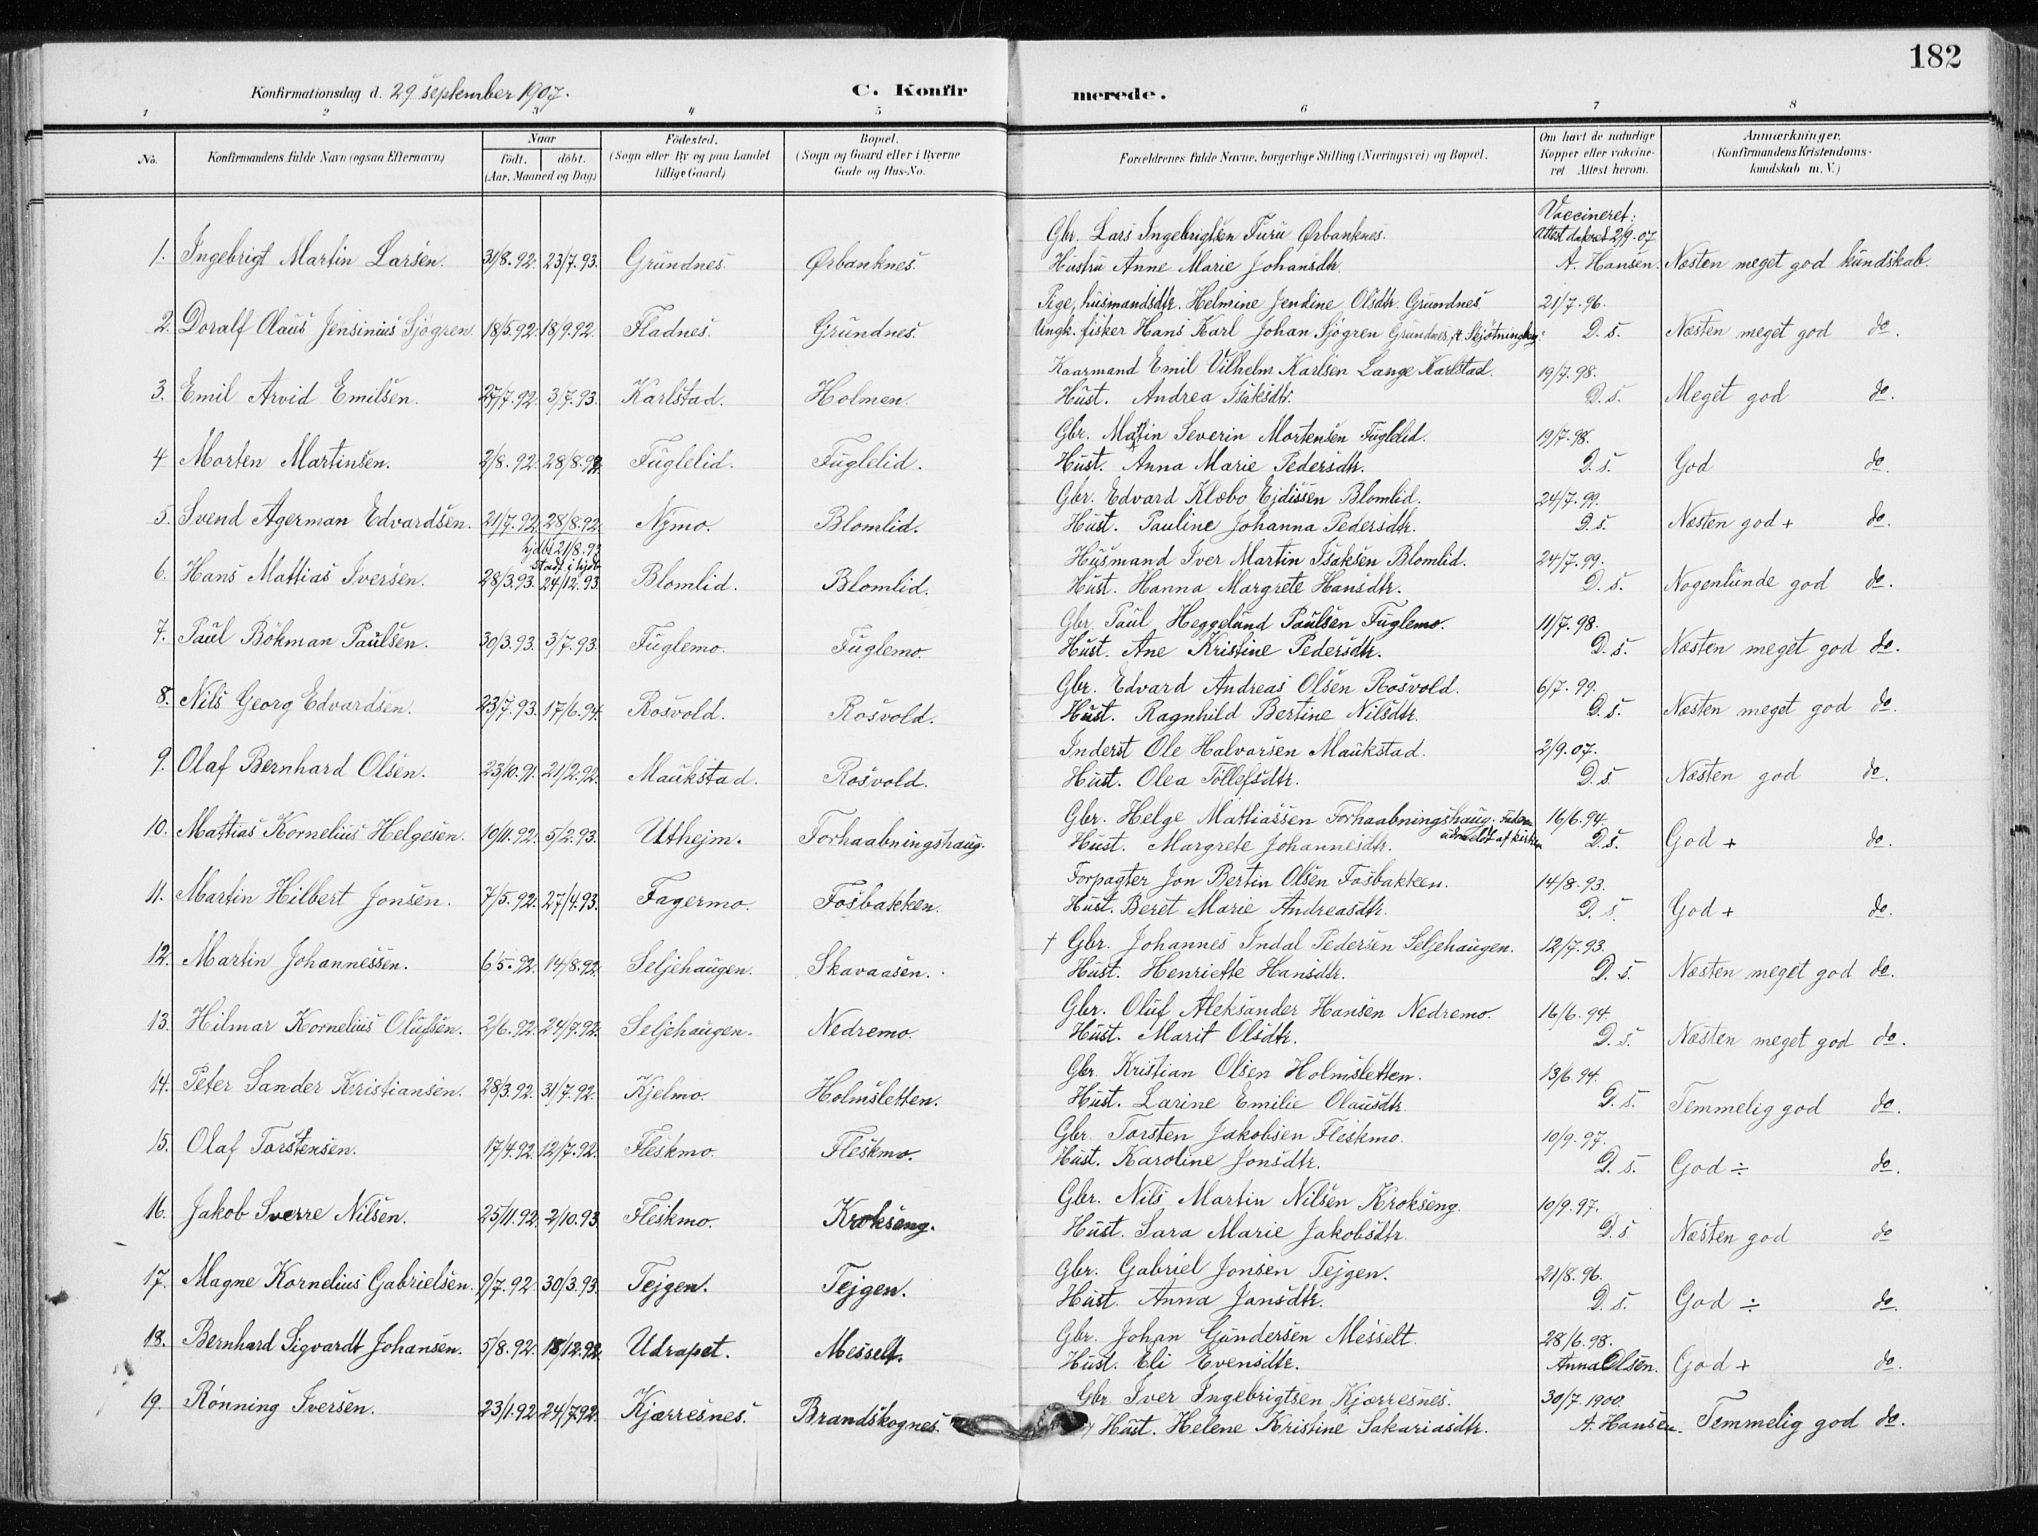 182
Konfirmationsdag d. 29 september 1907.
C. Konfirmerede.
1 2 3 4 5 6 7 8
No. Konfirmandens fulde Navn (ogsaa Efternavn) Naar født. døbt. (Aar, Maaned og Dag) Fødested. (Sogn eller By og paa Landet tillige Gaard) Bopæl. (Sogn og Gaard eller i Byerne Gade og Hus-No. Forældrenes fulde Navne, borgerlige Stilling (Næringsvei) og Bopæl. Om havt de naturlige Kopper eller vakcineret. Attest herom. Anmærkninger. (Konfirmandens Kristendomskundskab m. V.)
Gbr. Lars Ingebrigtsen Furu Ørbanknes. Vaccineret: Attest dateret 2/9.07
1. Ingebrigt Martin Larsen. 31/8.92. 23/7.93. Grundnes. Ørbanknes. Hustru Anne Marie Johansdtr. A. Hansen. Næsten meget god kundskab.
Pige, husmandsdtr. Helmine Jendine Olsdtr. Grundnes 21/7.96.
2. Doralf Olaus Jensinius Sjögren. 18/5.92. 18/9.92. Fladnes. Grundnes. Ungk. fisker Hans Karl Johan Sjögren Grundnes, D. s. Næsten meget god do.
Kaarmand Emil Vilhelm Karlsen Lange Karlstad. 19/7.98.
3. Emil Arvid Emilsen. 27/7.92. 3/7.93. Karlstad. Holmen. Hust. Andrea Isaksdtr. D. s. Meget god do.
Gbr. Matin Severin Mortensen Fuglelid. 19/7.98.
4 Morten Martinsen. 2/8.92. 28/8.92. Fuglelid. Fuglelid. Hust. Anna Marie Pedersdtr. D. s. God do.
Gbr. Edvard Klæbo Ejdissen Blomlid. 24/7.99.
5. Svend Agerman Edvardsen. 21/7.92. 28/8.92. Nymo. Blomlid. Hust. Pauline Johanna Pedersdtr. D. s. Næsten god + do.
hjdbt 21/8.93 stadf. i
Husmand Iver Martin Isaksen Blomlid. 24/7.99.
6. Hans Mattias Iversen. 28/3.93. 24/12.93. Blomlid. Blomlid. Hust. Hanna Margrete Hansdtr. D. s. Nogenlunde god do.
Gbr. Paul Heggelund Paulsen Fuglemo. 11/7.98.
7. Paul Bökman Paulsen. 30/3.93. 3/7.93. Fuglemo. Fuglemo. Hust. Ane Kristine Pedersdtr. D. s. Næsten meget god do.
Gbr. Edvard Andreas Olsen Rosvold. 6/7.99.
8. Nils Georg Edvardsen. 23/7.93. 17/6.94. Rosvold. Rosvold. Hust. Ragnhild Bertine Nilsdtr. D. s. Næsten meget god do.
Inderst Ole Halvarsen Maukstad. 2/9.07.
9. Olaf Bernhard Olsen. 23/10.91. 21/2.92. Maukstad. Rosvold. Hust. Olea Tollefsdtr. D. s. Næsten god do.
Gbr. Helge Mattiassen Forhaabningshaug. Faderen udmeldt af kirken 16/6.94.
10. Mattias Kornelius Helgesen. 10/11.92. 5/2.93. Uthejm. Forhaabningshaug. Hust. Margrete Johannesdtr. D. s. God + do.
Forpagter Jon Bertin Olsen Fosbakken. 14/8.93.
11. Martin Hilbert Jonsen. 7/5.92. 27/4.93. Fagermo. Fosbakken. Hust. Beret Marie Andreasdtr. D. s. God + do.
† Gbr. Johannes Indal Pedersen Seljehaugen. 12/7.93.
12. Martin Johannessen. 6/5.92. 14/8.92. Seljehaugen. Skavaasen. Hust. Henriette Hansdtr. D. s. Næsten meget god do.
Gbr. Oluf Aleksander Hansen Nedremo. 16/6.94.
13. Hilmar Kornelius Olufsen. 2/6.92. 24/9.92. Seljehaugen. Nedremo. Hust. Marit Olsdtr. D. s. Næsten meget god do.
Gbr. Kristian Olsen Holmsletten. 13/6.94.
14. Peter Sander Kristiansen. 28/3.92. 31/7.92. Kjelmo. Holmsletten. Hust. Larine Emilie Olausdtr. D. s. Temmelig god do.
Gbr. Torsten Jakobsen Fleskmo. 10/9.97.
15. Olaf Torstensen. 17/4.92. 12/7.92. Fleskmo. Fleskmo. Hust. Karoline Jonsdtr. D. s. God ÷ do.
Gbr. Nils Martin Nilsen Krokseng. 10/9.97.
16. Jakob Sverre Nilsen. 25/11.92. 2/10.93. Fleskmo. Krokseng. Hust. Sara Marie Jakobsdtr. D. s. Næsten god do
Gbr. Gabriel Jonsen Tejgen. 21/8.96.
17. Magne Kornelius Gabrielsen. 9/7.92. 30/3.93. Tejgen. Tejgen. Hust. Anna Jansdtr. D. s. God ÷ do.
Gbr. Johan Gundersen Messelt. 28/6.98.
18. Bernhard Sigvardt Johansen. 5/8.92. 18/12.92. Udrapet. Messelt. Hust. Eli Evensdtr. Anna Olsen. God + do.
Gbr. Iver Ingebrigtsen Kjærresnes. 30/7.1900.
19. Rönning Iversen. 23/1.92 24/7.92. Kjærresnes. Brandskognes. † Hust. Helene Kristine Sakariasdtr. A. Hansen. Temmelig god do.